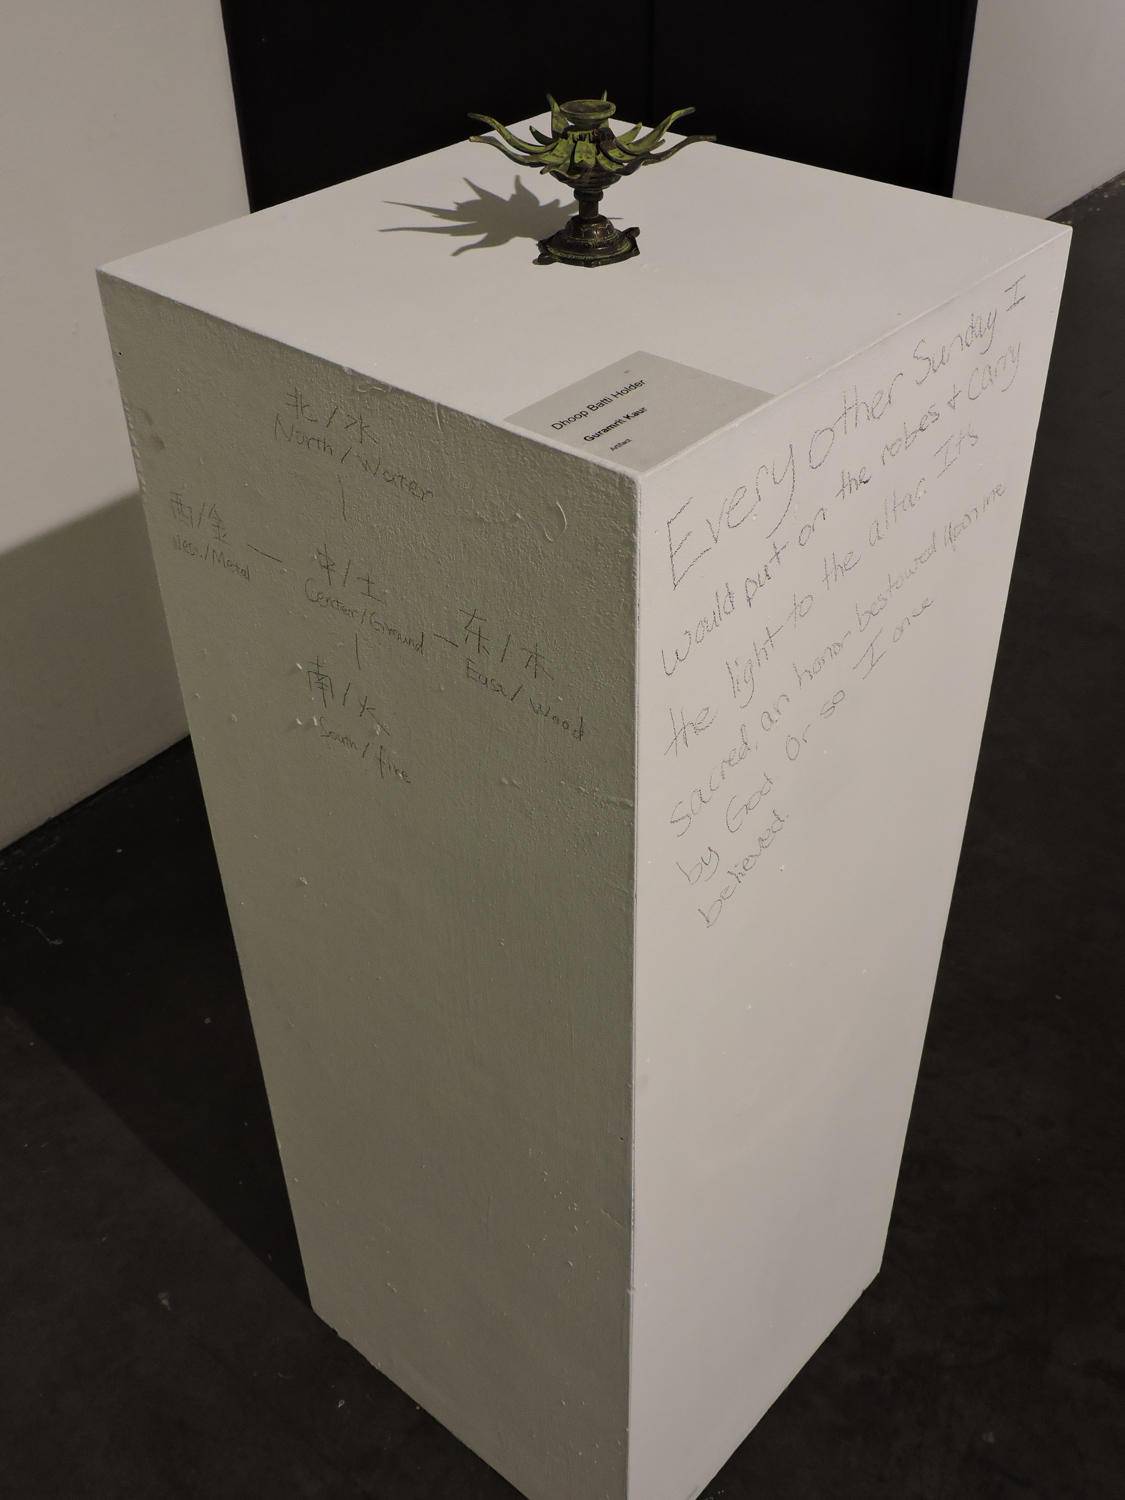 Dhoop Batti Holder
Guramrit Kaur
Artifact
北/水
North/Water
西/金
West/Metal
中/土
Center/Ground
东/木
East/Wood
南/火
South/fire
Every other Sunday I
would put on the robes + carry
the light to the altar. It's
sacred, an honor bestowed upon me
by God Or so I once
believed.